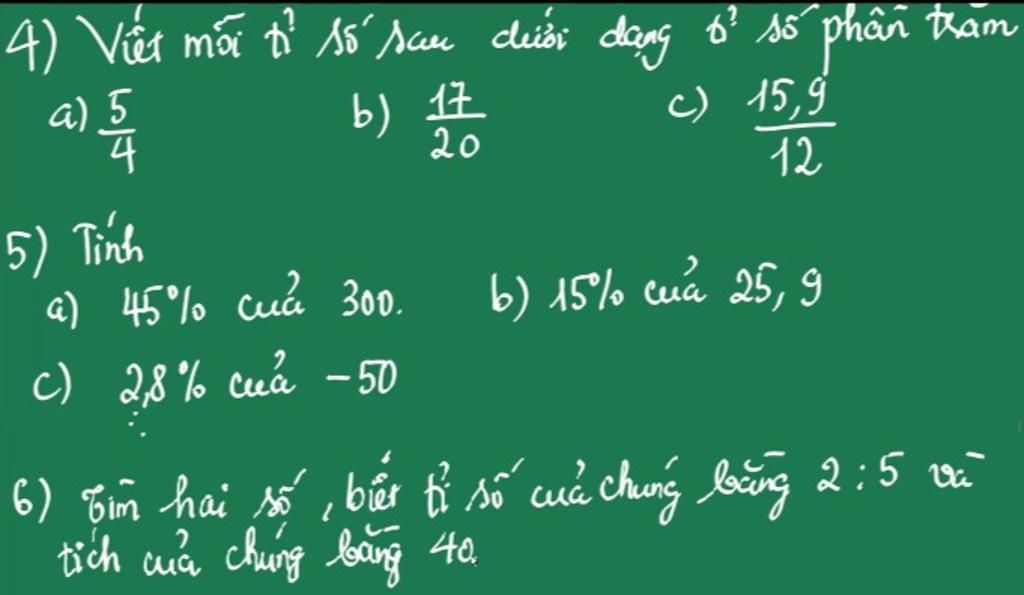 4) Viết mỗi tỉ số sau dưới dạng tỉ số phần trăm
a) 5/4 b) 17/20 c) 15,9/12
5) Tính
a) 45% của 300. b) 15% của 25,9
c) 2,8% của -50
6) Tìm hai số, biết tỉ số của chúng bằng 2:5 và
tích của chúng bằng 40.